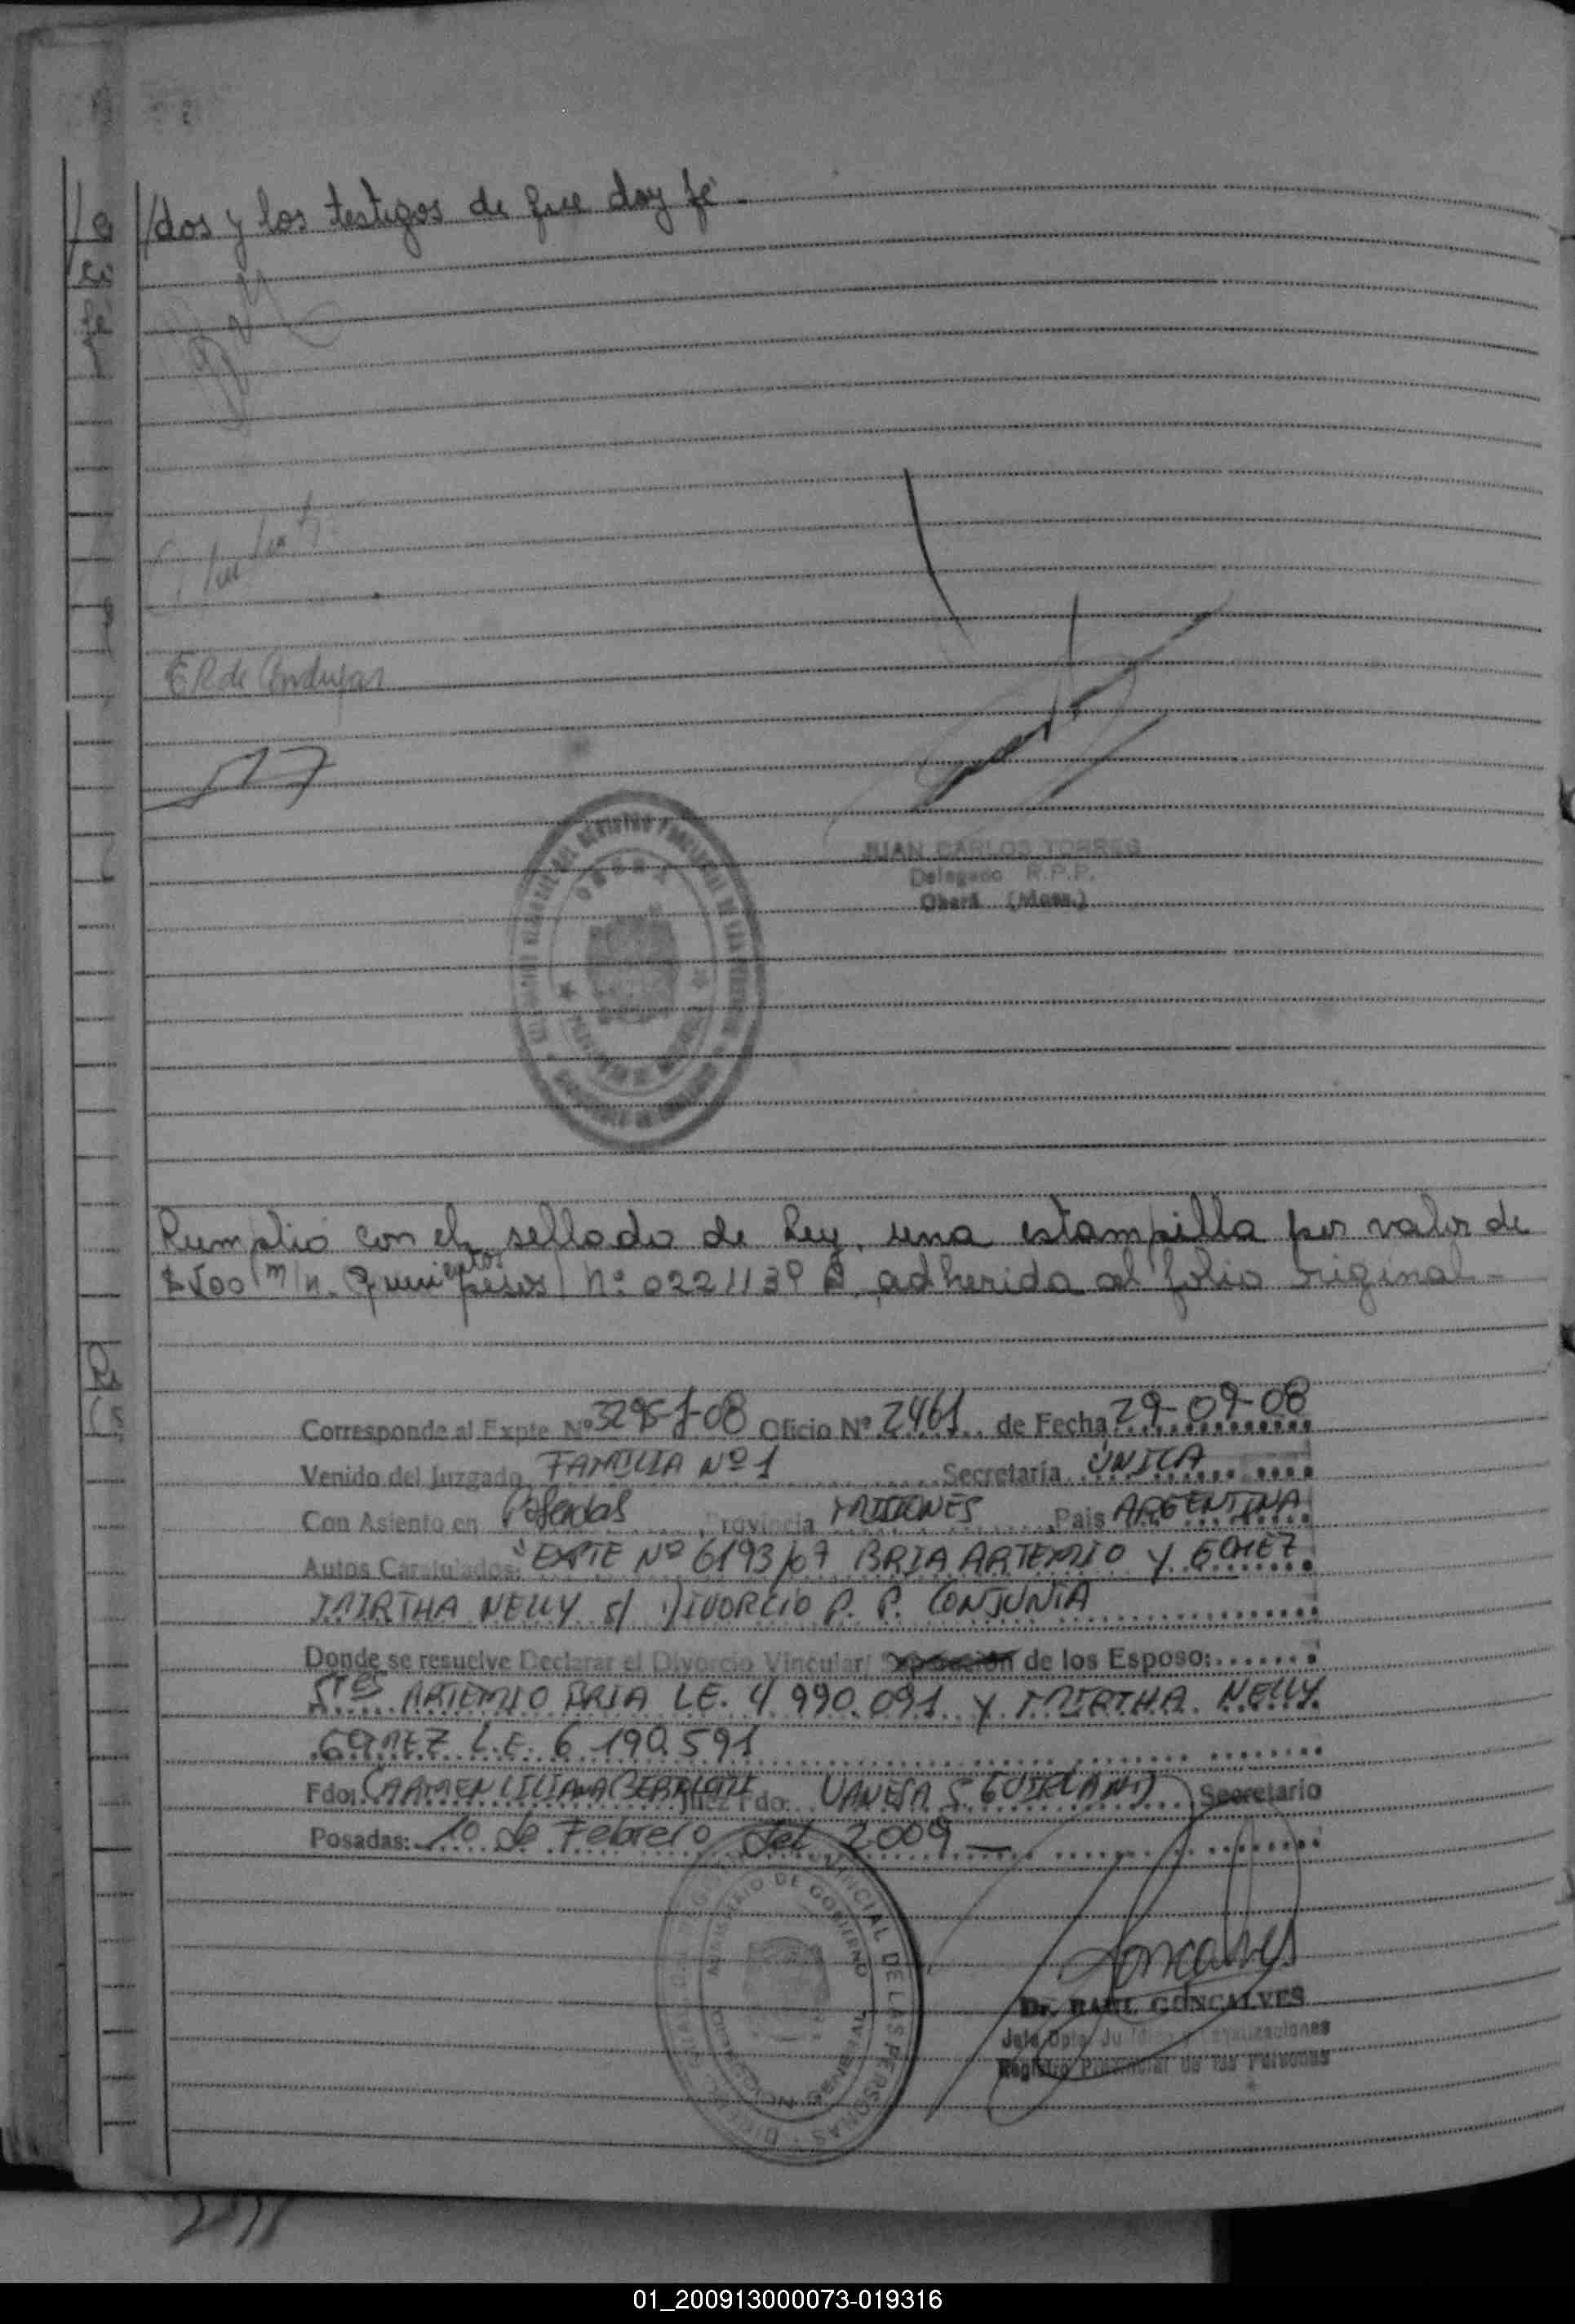 //dos y los testigos de que doy fe.-
E R de Andujar
JUAN CARLOS TORRES
Delegado R.P.P.
Oberá (Mnes.)
Cumplió con el sellado de Ley, una estampilla por valor de
$500 m/n. Quinientos pesos Nº 0221139 adherida al folio original.-
Corresponde al Expte Nº 3295-J-08 Oficio Nº 2461 de Fecha 29-09-08
Venido del Juzgado FAMILIA Nº 1 Secretaría UNICA
Con Asiento en Posadas Provincia MISIONES Pais ARGENTINA
Autos Caratulados: "EXPTE Nº 6193/07 BRIA ARTEMIO Y GOMEZ
MIRTHA NELLY s/ DIVORCIO P. P. CONJUNTA
Donde se resuelve Declarar el Divorcio Vincular/ Separación de los Esposo:
Sres ARTEMIO BRIA LE. 4 990.091 y MIRTHA NELLY
GOMEZ L.E. 6 190.591
Fdo: CARMEN LILIANA Juez Fdo: VANESA S. Secretario
Posadas: 10 de Febrero del 2009
MINISTERIO DE GOBIERNO
PROVINCIAL DE LAS PERSONAS
Goncalves
Dr. RAUL GONCALVES
Jefe Dpto. Ju
Registro Provincial de las Personas
01_200913000073-019316